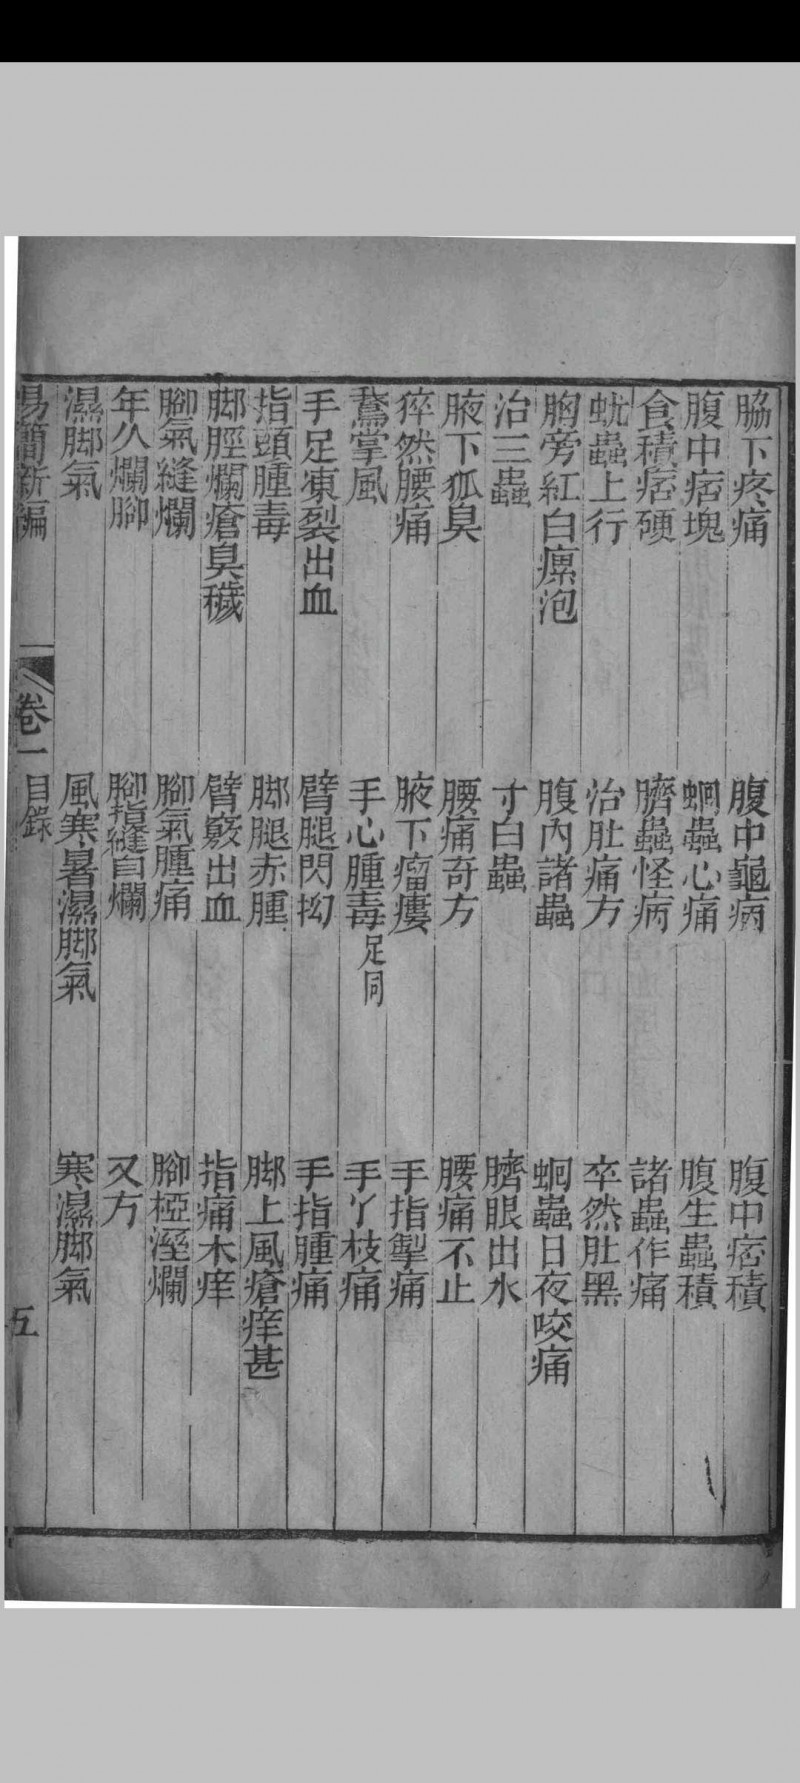 脇下疼痛　腹中龜病　腹中痞積
腹中痞塊　蛔蟲心痛　腹生蟲積
食積痞硬　臍蟲怪病　諸蟲作痛
蚘蟲上行　治肚痛方　卒然肚黑
胸旁紅白瘭泡　腹內諸蟲　蛔蟲日夜咬痛
治三蟲　寸白蟲　臍眼出水
腋下狐臭　腰痛奇方　腰痛不止
猝然腰痛　腋下瘤癭　手指掣痛
鵞掌風　手心腫毒足同　手丫枝痛
手足凍裂出血　臂腿閃抝　手指腫痛
指頭腫毒　脚腿赤腫　脚上風瘡痒甚
脚脛爛瘡臭穢　臂竅出血　指痛木痒
腳氣縫爛　腳氣腫痛　腳椏溼爛
年久爛腳　腳指縫自爛　又方
濕脚氣　風寒暑濕脚氣　寒濕脚氣
易簡新編　卷一　目錄　五